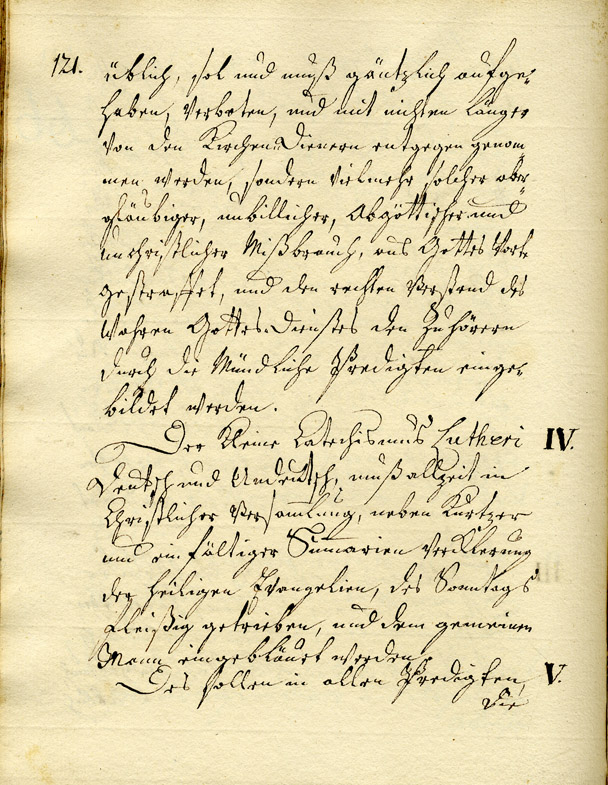 121.
üblich, sol und muß gäntzlich aufge-
haben, verboten, und mit nichten länger
von den Kirchen-Dienern entgegen genom
men werden, sondern vielmehr solcher aber-
gläubiger, unbillicher, Abgöttischer und
unchristlicher Mißbrauch, aus Gottes Wort
gestraffet, und den rechten Verstand des
Wahren Gottes-Dienstes den Zuhörern
durch die Mündliche Predigten einge-
bildet werden.
Der Kleine Catechismus Lutheri IV.
Deutsch und Undeutsch, muß allzeit in
Christlicher Versamlung, neben Kurtzer
und einfältiger Summarien Verklerung
der heiligen Evangelien, des Sonntags
fleißig getrieben, und dem gemeinen
Mann eingebläuet werden.
Des sollen in allen Predigten, V.
die